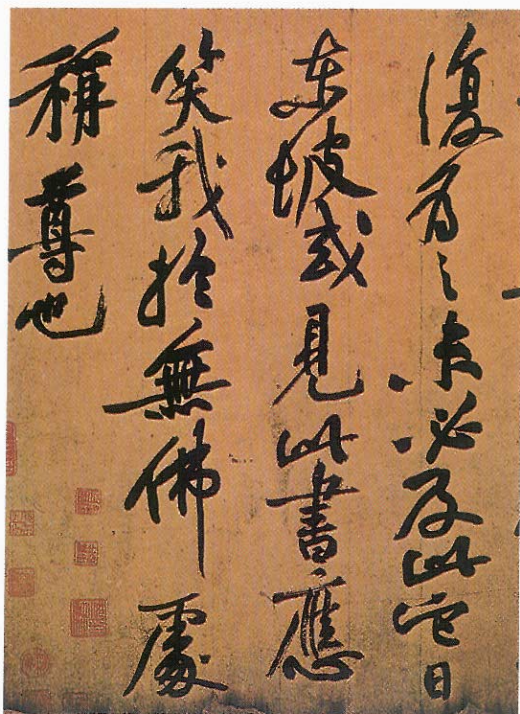 復為之未必及此它日
東坡或見此書應
笑我於無佛處
稱尊也